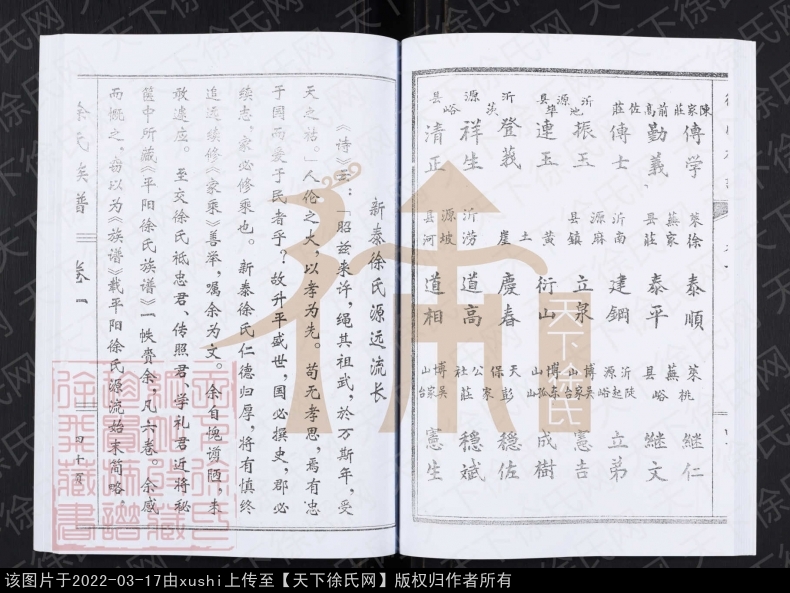 陳家莊
傳学
前高佐莊
勤義
傳士
沂源縣
池埠
振玉
連玉
沂源縣
茨峪
登莪
祥生
清正
莱蕪縣
徐家莊
泰順
泰平
沂源縣
南麻鎮
建鋼
立泉
黄土崖
衍山
慶春
沂源縣
涝坡河
道高
道相
莱蕪縣
桃峪
继仁
继文
立弟
博山
吴家台
憲吉
博山
东孤山
成樹
天保公社
彭家莊
穩佐
穩斌
博山
吴家台
憲生
新泰徐氏源远流长
《诗》云：「昭兹来许，绳其祖武，於万斯年，受
天之祜。」人伦之大，以孝为先。苟无孝思，焉有忠
于国而爱于民者乎？故升平盛世，国必撰史，郡必
续志，家必修乘也。新泰徐氏仁德归厚，将有慎终
追远续修《家乘》善举，嘱余为文。余自愧谫陋，未
敢遽应。至交徐氏祗忠君、传照君、学礼君近将秘
箧中所藏《平阳徐氏族谱》一帙赍余，凡六卷。余感
而慨之，窃以为《族谱》载平阳徐氏源流始末简略，
徐氏族谱 卷一
四十页
天下徐氏网
该图片于2022-03-17由xushi上传至【天下徐氏网】版权归作者所有